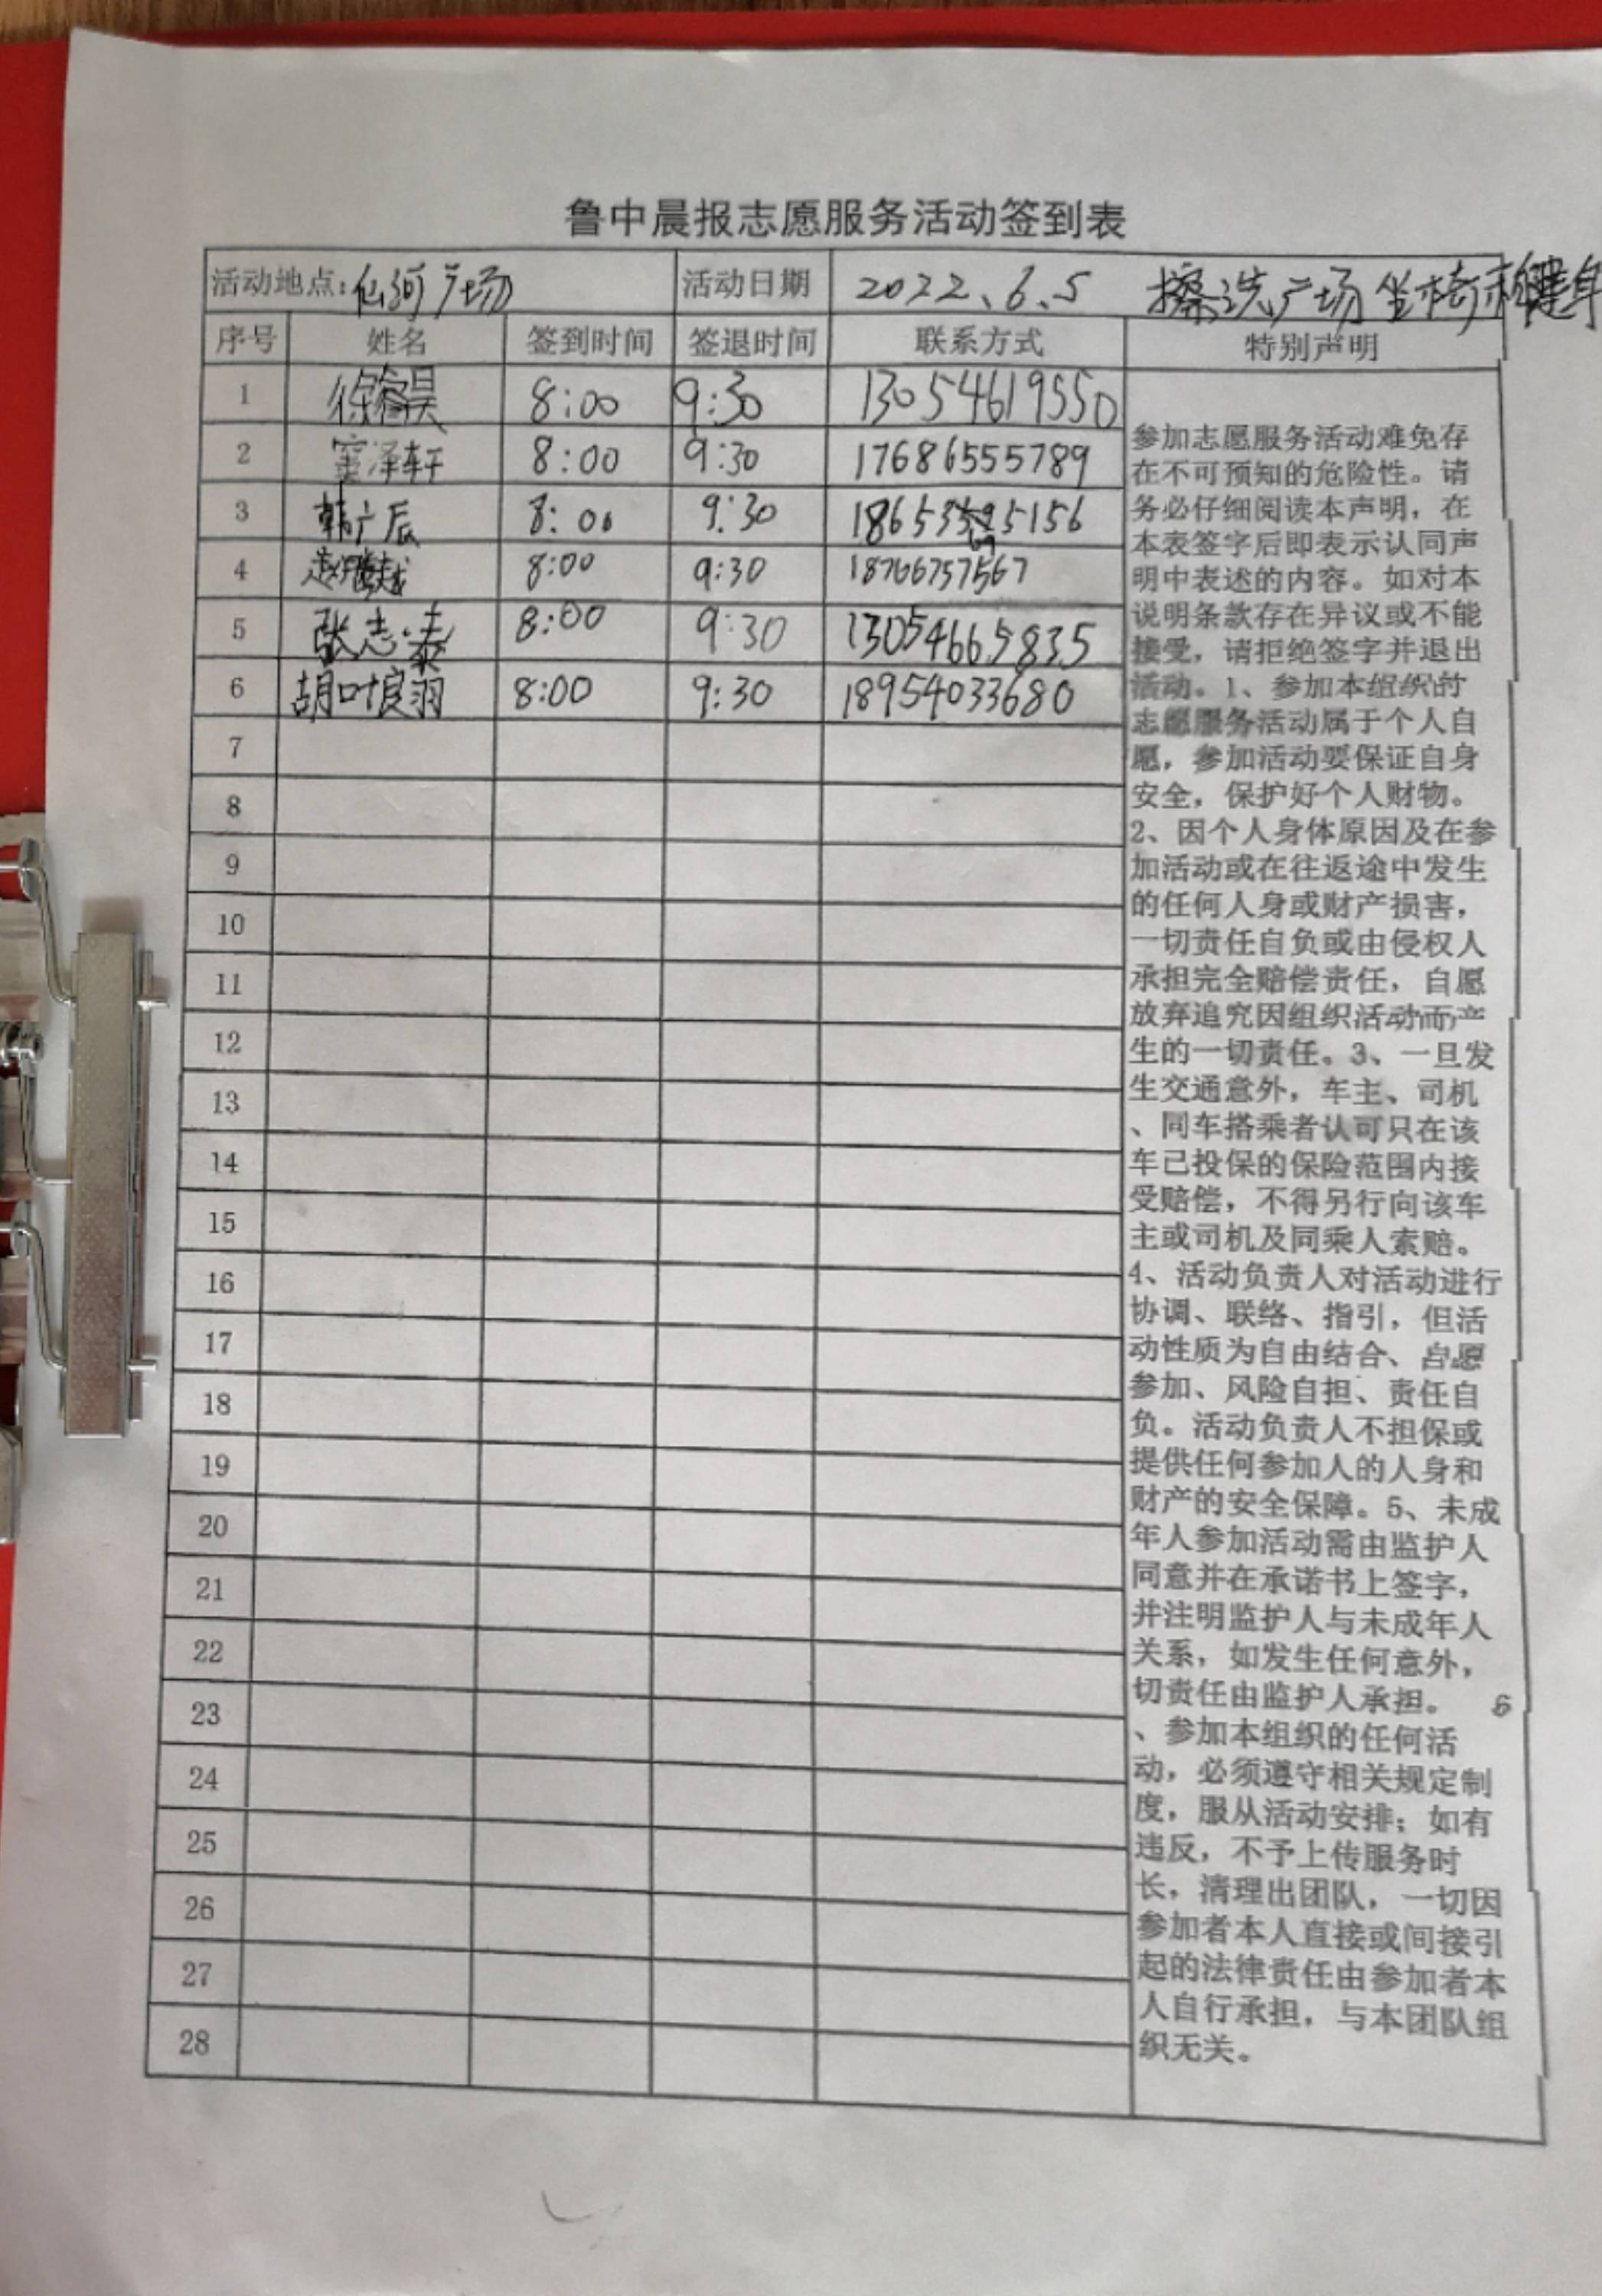 鲁中晨报志愿服务活动签到表
活动地点:仙河广场 活动日期 2022、6、5 擦洗广场坐椅和健身
序号 姓名 签到时间 签退时间 联系方式 特别声明
1 徐睿昊 8:00 9:30 13054619550
2 泽轩 8:00 9:30 17686555789
3 韩广辰 8:00 9:30
4 赵 越 8:00 9:30 18766757567
5 张志泰 8:00 9:30 13054665835
6 胡叶良羽 8:00 9:30 18954033680
7
8
9
10
11
12
13
14
15
16
17
18
19
20
21
22
23
24
25
26
27
28
参加志愿服务活动难免存
在不可预知的危险性。请
务必仔细阅读本声明，在
本表签字后即表示认同声
明中表述的内容。如对本
说明条款存在异议或不能
接受，请拒绝签字并退出
活动。1、参加本组织的
志愿服务活动属于个人自
愿，参加活动要保证自身
安全，保护好个人财物。
2、因个人身体原因及在参
加活动或在往返途中发生
的任何人身或财产损害，
一切责任自负或由侵权人
承担完全赔偿责任，自愿
放弃追究因组织活动而产
生的一切责任。3、一旦发
生交通意外，车主、司机
、同车搭乘者认可只在该
车已投保的保险范围内接
受赔偿，不得另行向该车
主或司机及同乘人索赔。
4、活动负责人对活动进行
协调、联络、指引，但活
动性质为自由结合、自愿
参加、风险自担、责任自
负。活动负责人不担保或
提供任何参加人的人身和
财产的安全保障。5、未成
年人参加活动需由监护人
同意并在承诺书上签字，
并注明监护人与未成年人
关系，如发生任何意外，
切责任由监护人承担。 6
、参加本组织的任何活
动，必须遵守相关规定制
度，服从活动安排；如有
违反，不予上传服务时
长，清理出团队，一切因
参加者本人直接或间接引
起的法律责任由参加者本
人自行承担，与本团队组
织无关。